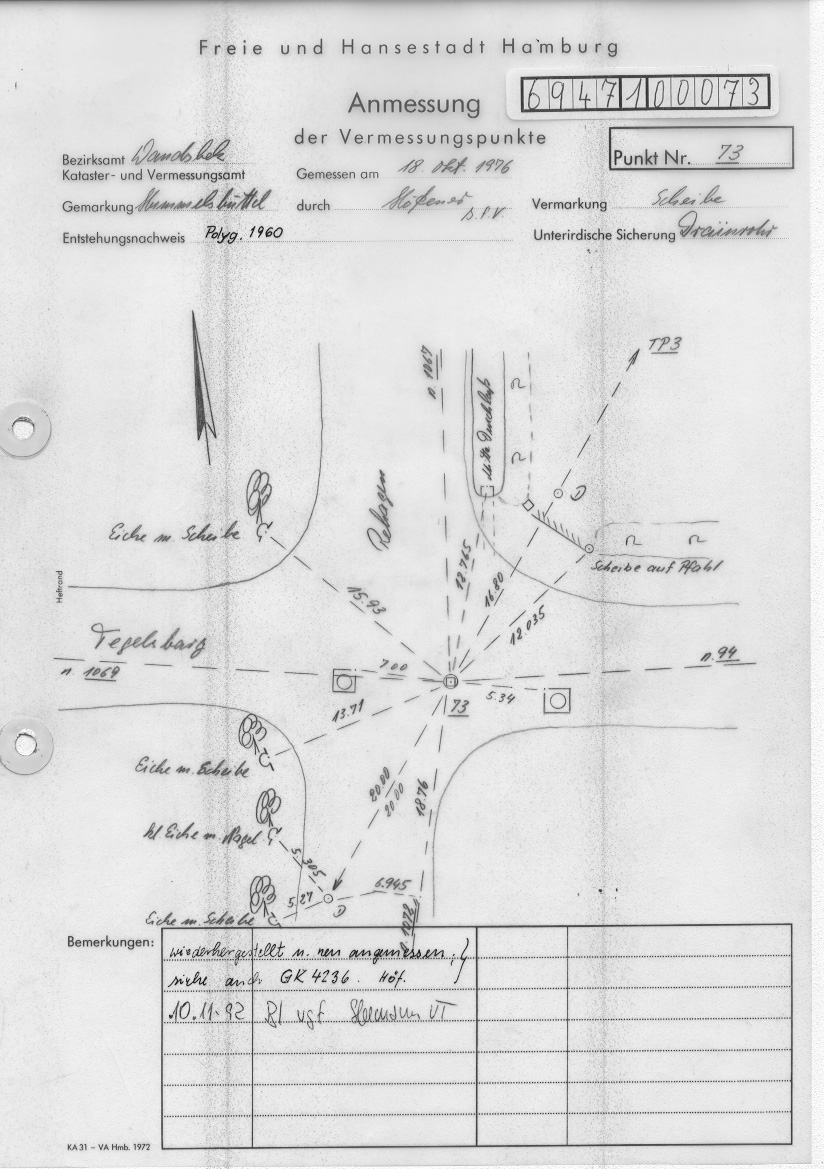 Freie und Hansestadt Hamburg
6947100073
Anmessung
der Vermessungspunkte
Punkt Nr. 73
Bezirksamt Wandsbek
Kataster- und Vermessungsamt
Gemessen am 18. Okt. 1976
Gemarkung Hummelsbüttel
durch
Vermarkung Scheibe
Entstehungsnachweis Polyg. 1960
Unterirdische Sicherung Drainrohr
TP3
n. 1067
D
Rehagen
Eiche m. Scheibe
Scheibe auf Pfahl
Heftrand
12.765
16.80
15.93
12.035
Tegelsbarg
n. 1069
7.00
n. 94
5.34
73
13.71
Eiche m. Scheibe
20.00
20.00
18.76
kl Eiche m. Nagel
5.305
6.945
5.27
D
Eiche m. Scheibe
n. 1072
Bemerkungen:
wiederhergestellt u. neu angemessen;
siehe auch GK 4236. Höf.
10.11.92
KA 31 – VA Hmb. 1972